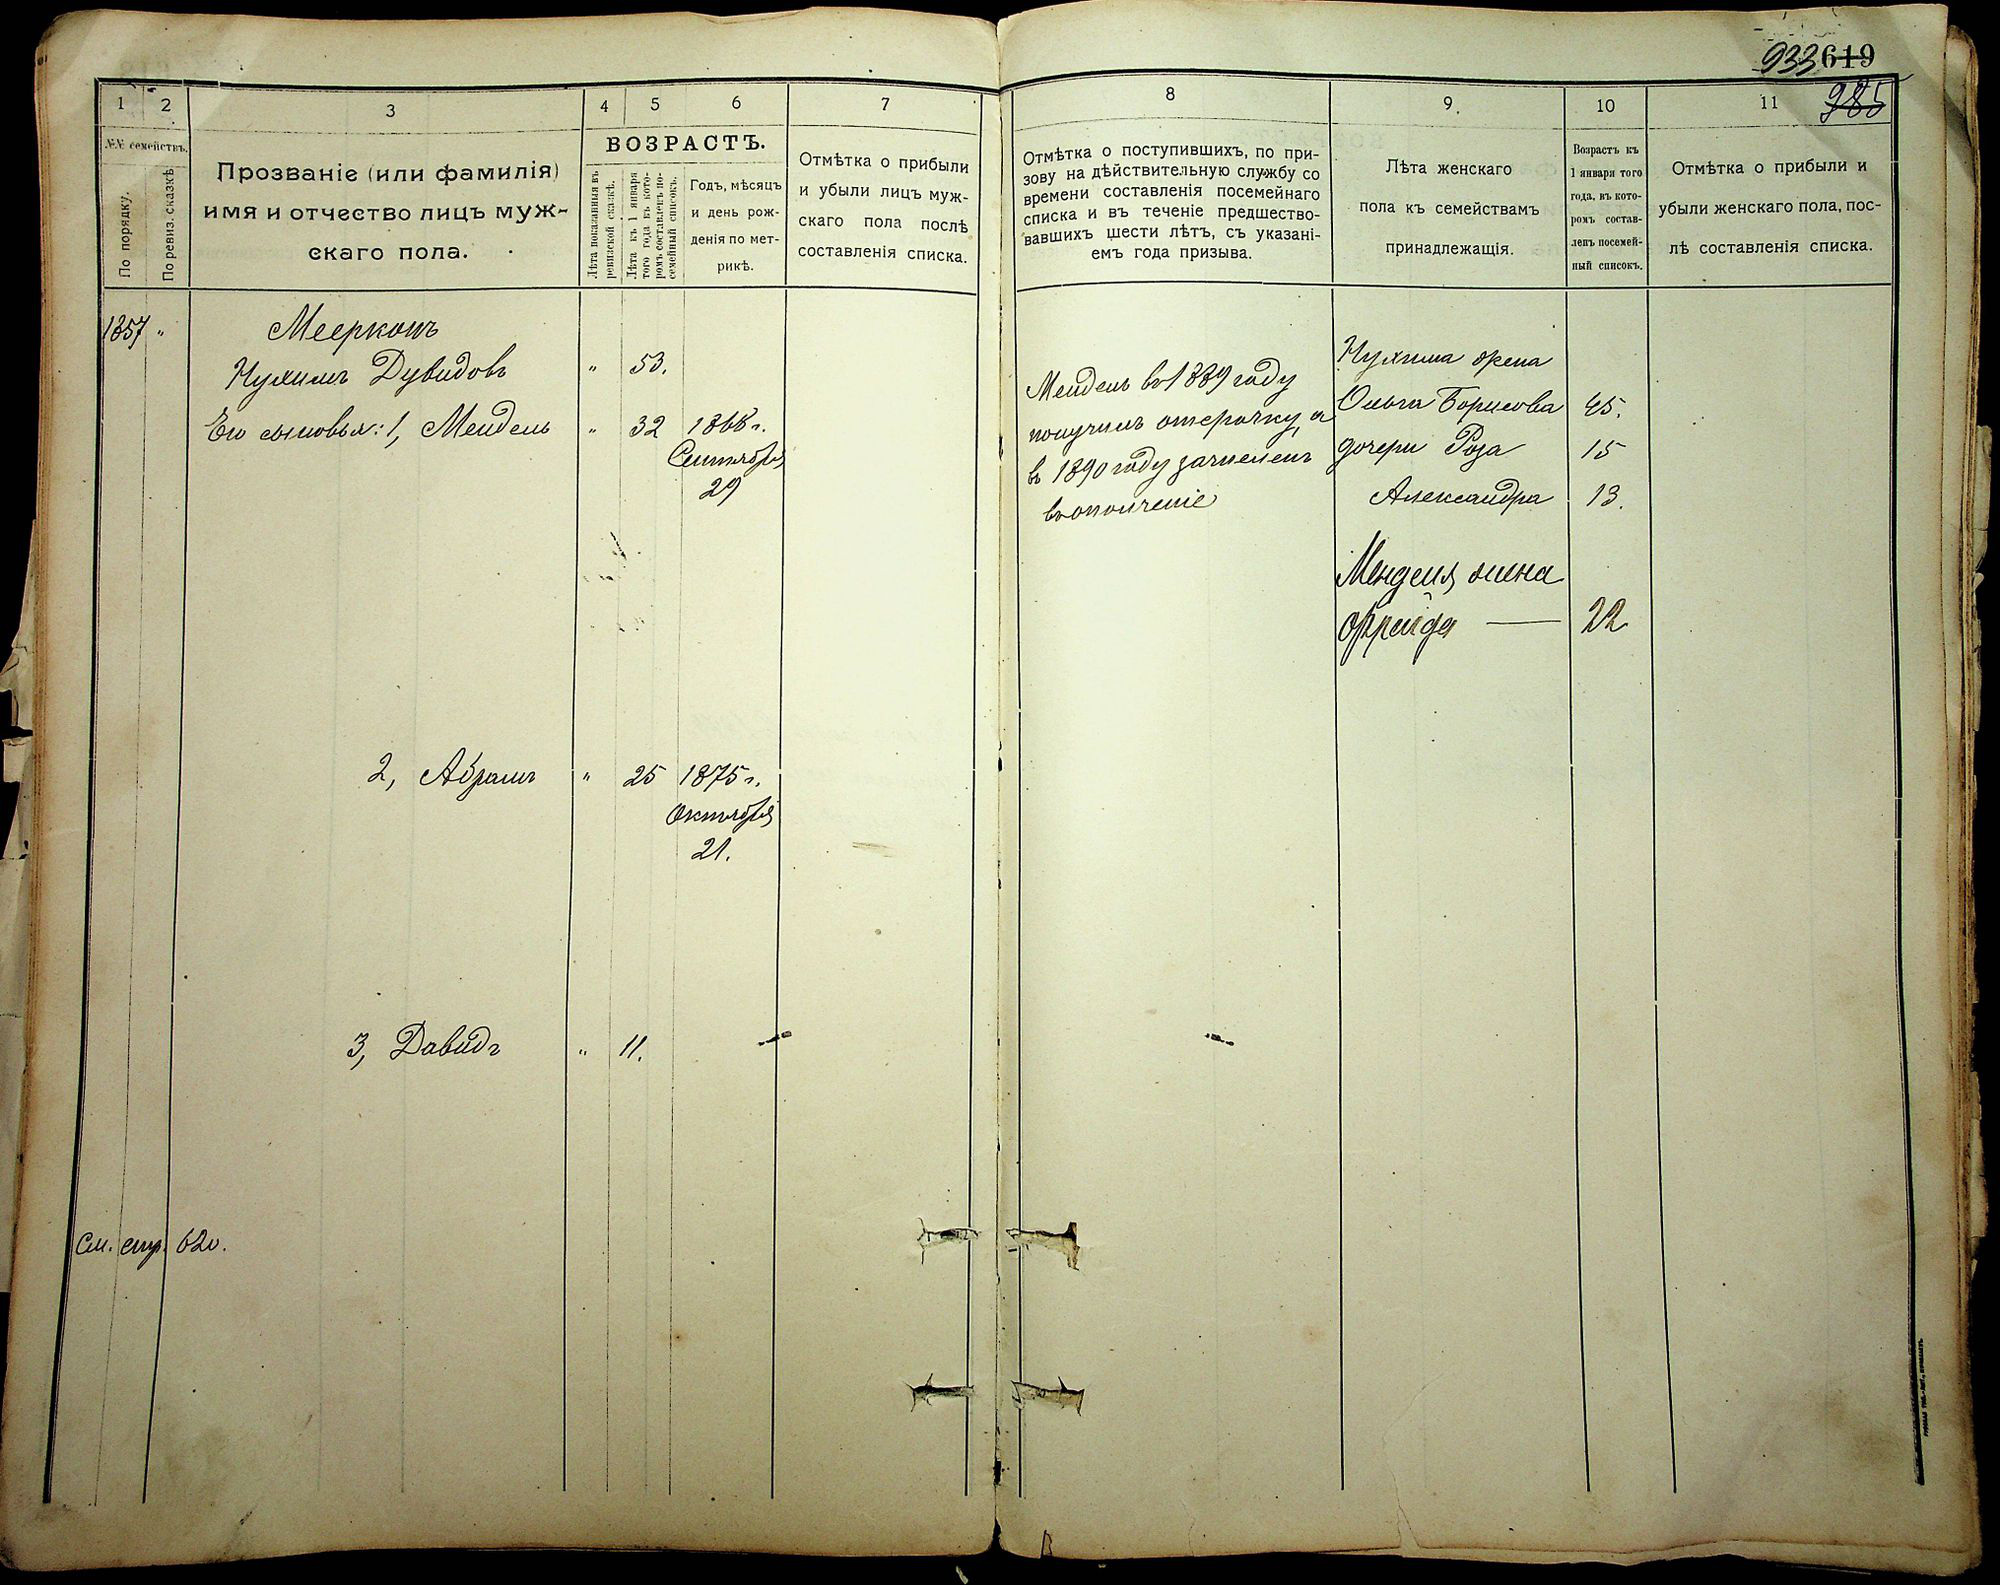 933 619
985
1
2
3
4
5
6
7
№№ семействъ.
По порядку.
По ревиз. сказкѣ
Прозваніе (или фамилія)
имя и отчество лицъ муж-
скаго пола.
ВОЗРАСТЪ.
Лѣта показанныя въ
ревизской сказкѣ.
Лѣта къ 1 января
того года въ кото-
ромъ составленъ по-
семейный списокъ.
Годъ, мѣсяцъ
и день рож-
денія по мет-
рикѣ.
Отмѣтка о прибыли
и убыли лицъ муж-
скаго пола послѣ
составленія списка.
1357 "
Мееркопъ
Нухимъ Дувидовъ " 53.
Его сыновья: 1, Мендель " 32 1868 г.
Сентября
29
2, Абрамъ " 25 1875 г.
Октября
21.
3, Давидъ " 11.
См. стр. 620.
8
9.
10
11
Отмѣтка о поступившихъ, по при-
зову на дѣйствительную службу со
времени составленія посемейнаго
списка и въ теченіе предшество-
вавшихъ шести лѣтъ, съ указані-
емъ года призыва.
Лѣта женскаго
пола къ семействамъ
принадлежащія.
Возрастъ къ
1 января того
года, въ кото-
ромъ состав-
ленъ посемей-
ный списокъ.
Отмѣтка о прибыли и
убыли женскаго пола, пос-
лѣ составленія списка.
Мендель въ 1889 году
получилъ отсрочку, а
въ 1890 году зачисленъ
въ ополченіе
Нухима жена
Ольга Борисова 45.
дочери Роза 15
Александра 13.
Менделя жена
Фрейда — 22